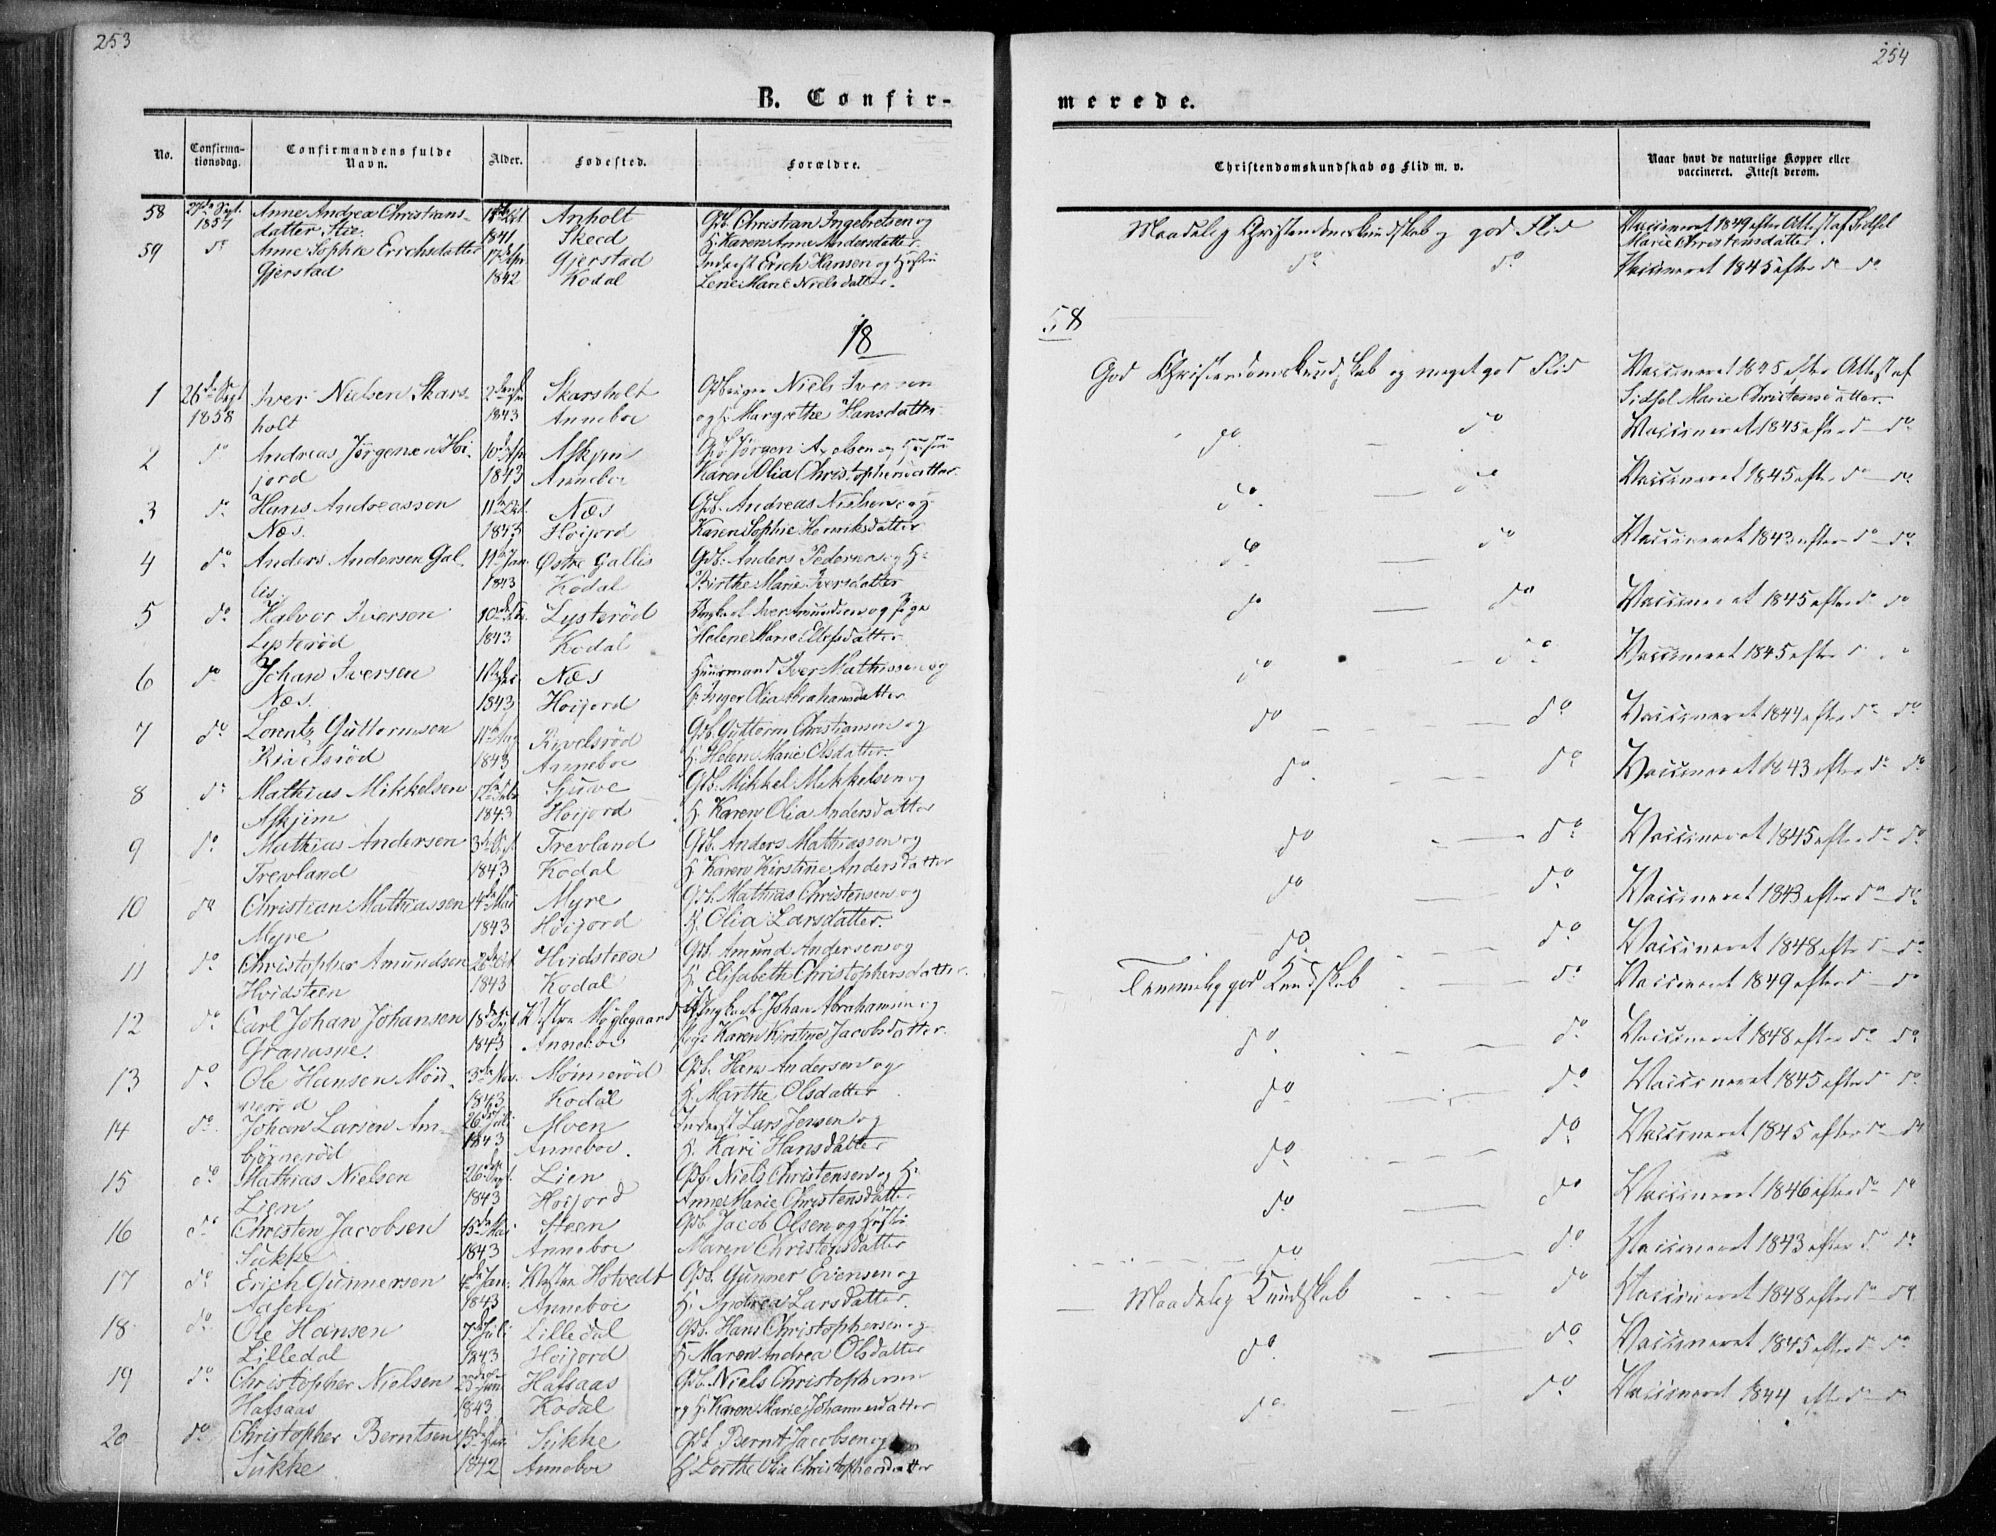 253
254
B. Confir-
merede.
No.
Confirma-
tionsdag.
Confirmandens fulde
Navn.
Alder.
Fødested.
Forældre.
Christendomskundskab og Flid m. v.
Naar havt de naturlige Kopper eller
vaccineret. Attest derom.
58 27de Sept. Anne Andrea Christians- Anholt Gdb. Christian Ingebretsen og Maadelig Christendomskundskab og god Flid Vaccineret 1849 efter Attest af Sidsel
1857 datter 1841 Skeed H. Karen Anne Andersdatter Marie Christensdatter.
59 do Anne Sophie Erichsdatter 17de Gjerstad Inderst Erich Hansen og Hustru do do Vaccineret 1845 efter do do
Gjerstad 1842 Kodal Lene Marie Nielsdatter.
18
58
1 26de Sept Iver Nielsen Skars- 2den Skarsholt Niels Iversen God Christendomskundskab og meget god Flid Vaccineret 1845 efter Attest af
1858 holt 1843 Anneboe og H. Margrethe Hansdatter Sidsel Marie Christensdatter.
2 do Andreas Jörgensen Höi- 10de Askjem Gdb Jørgen Axelsen og Hustru do do Vaccineret 1845 efter do do
jord 1843 Anneboe Karen Olia Christophersdatter
3 do Hans Andreassen 11te Næs Gdb. Andreas Nielsen og H. do do Vaccineret 1845 efter do do
Næs. 1843 Höijord Karen Sophie Henriksdatter
4 do Anders Andersen Gal- 11te Jan. Østre Gallis Gdb. Anders Pedersen og H. do do Vaccineret 1843 efter do do
lis. 1843 Kodal Birthe Marie Iversdatter
5 do Halvor Iversen 10de Lysterød Iver Amundsen og Pige do do Vaccineret 1845 efter do do
Lysterød 1843 Kodal Helene Marie Ellefsdatter
6 do Johan Iversen 11te Næs Huusmand Iver Mathissen og do do Vaccineret 1845 efter do
Næs. 1843 Höijord H. Inger Olia Abrahamsdatter
7 do Lorentz Guttormsen 11te Rivelsröd Gdb. Guttorm Christiansen og do do Vaccineret 1844 efter do do
Rivelsröd 1843 Anneboe H. Helene Marie Olsdatter.
8 do Mathias Mikkelsen 12te Gdb. Mikkel Mikkelsen og do do Vaccineret 1843 efter do do
Askjim 1843 Höijord H. Karen Olia Andersdatter
9 do Mathias Andersen 3die Trevland Gdb. Anders Mathiassen og do do Vaccineret 1845 efter do do
Trevland 1843 Kodal H. Karen Kirstine Andersdatter
10 do Christian Mathiassen 14de Mai Myre Gdb. Mathias Christensen og do do Vaccineret 1843 efter do do
Myre 1843 Höijord H. Olia Larsdatter.
11 do Christopher Amundsen Hvidsteen Gdb. Amund Andersen og do do Vaccineret 1848 efter do do
Hvidsteen 1843 Kodal H. Elisabeth Christophersdatter Temmelig god Kundskab do Vaccineret 1849 efter do do
12 do Carl Johan Johansen 18de Vestre Møglegaard Ungkarl Johan Abrahamsen og do do Vaccineret 1848 efter do do
Granasne. 1843 Anneboe Pige Karen Kirstine Jacobsdatter
13 do Ole Hansen Mön- 3die Nov. Mönneröd Gdb. Hans Andersen og do do Vaccineret 1845 efter do do
neröd 1843 Kodal H. Marthe Olsdatter
14 do Johan Larsen Am- 26de Juli Moen Inderst Lars Jensen og do do Vaccineret 1845 efter do do
björneröd 1843 Anneboe. H. Kari Hansdatter
15 do Mathias Nielsen 26de Lien Gdb. Niels Christensen og H. do do Vaccineret 1846 efter do do
Lien 1843 Höijord Anne Marie Christensdatter
16 do Christen Jacobsen 15de Mai Steen Gdb. Jacob Olsen og Hustru do do Vaccineret 1843 efter do do
Sukke 1843 Anneboe Maren Christensdatter
17 do Erich Gunnersen 4de Jan. Hotvedt Gdb. Gunner Evensen og Maadelig Kundskab do Vaccineret 1848 efter do do
Aasen 1843 Anneboe H. Andrea Larsdatter.
18 do Ole Hansen 7de Juli Lilledal Gdb. Hans Christophersen og do do Vaccineret 1845 efter do do
Lilledal 1843 Höijord H. Maren Andrea Olsdatter
19 do Christopher Nielsen Hafsaas Gdb. Niels Christophersen do do Vaccineret 1844 efter do do
Hafsaas 1843 Kodal og H. Karen Marie Johannesdatter
20 do Christopher Berntsen Sukke Gdb. Bernt Jacobsen og
Sukke 1842 Anneboe H. Dorthe Olia Christophersdatter